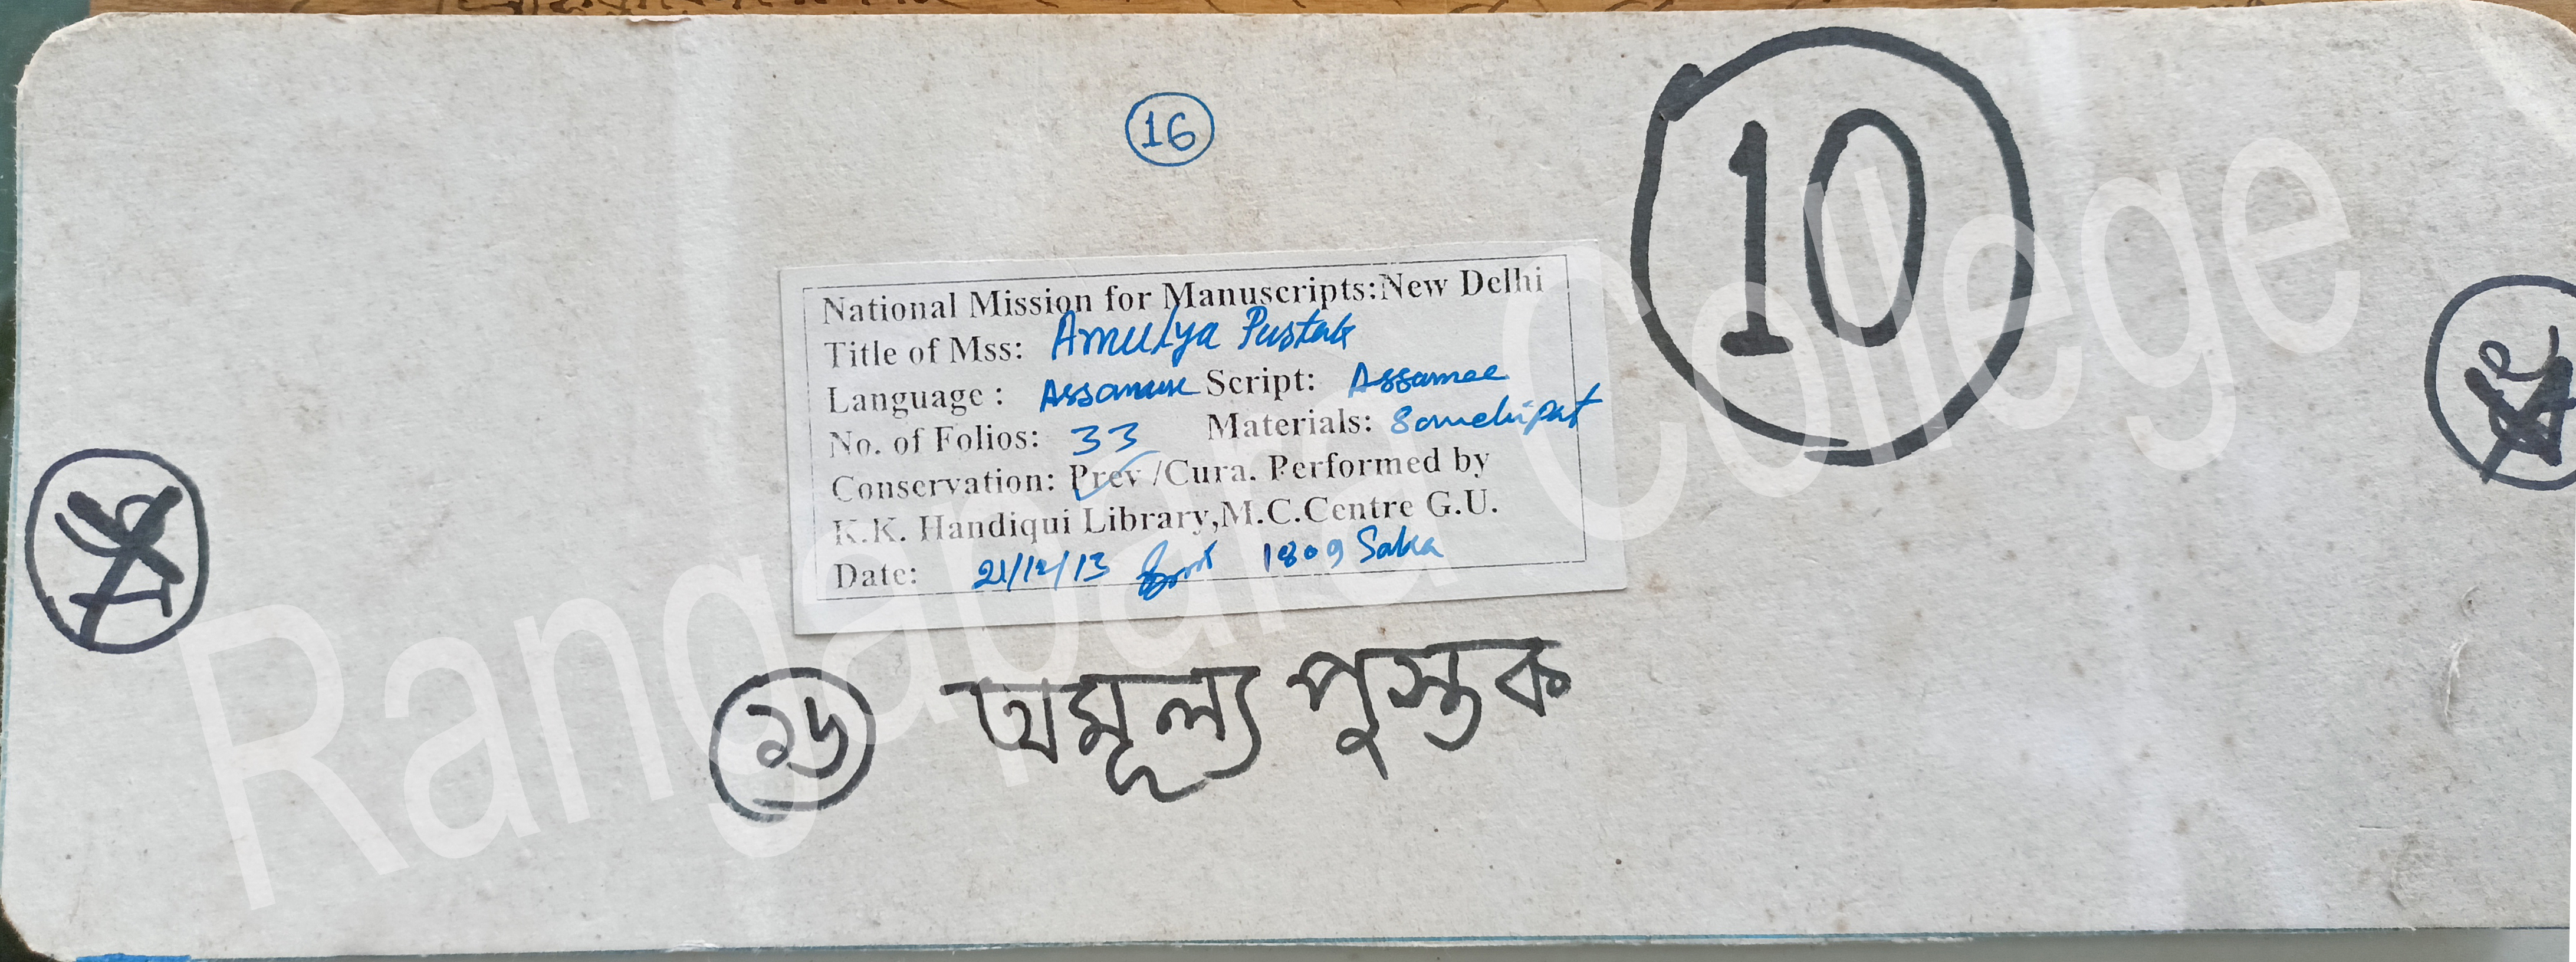 16
10
National Mission for Manuscripts:New Delhi
Title of Mss: Amulya Pustak
Language : Assamese Script: Assamee
No. of Folios: 33 Materials: Sanchipat
Conservation: Prev /Cura. Performed by
K.K. Handiqui Library,M.C.Centre G.U.
Date: 21/12/13 1809 Saka
১৬ অমূল্য পুস্তক
Rangapara College